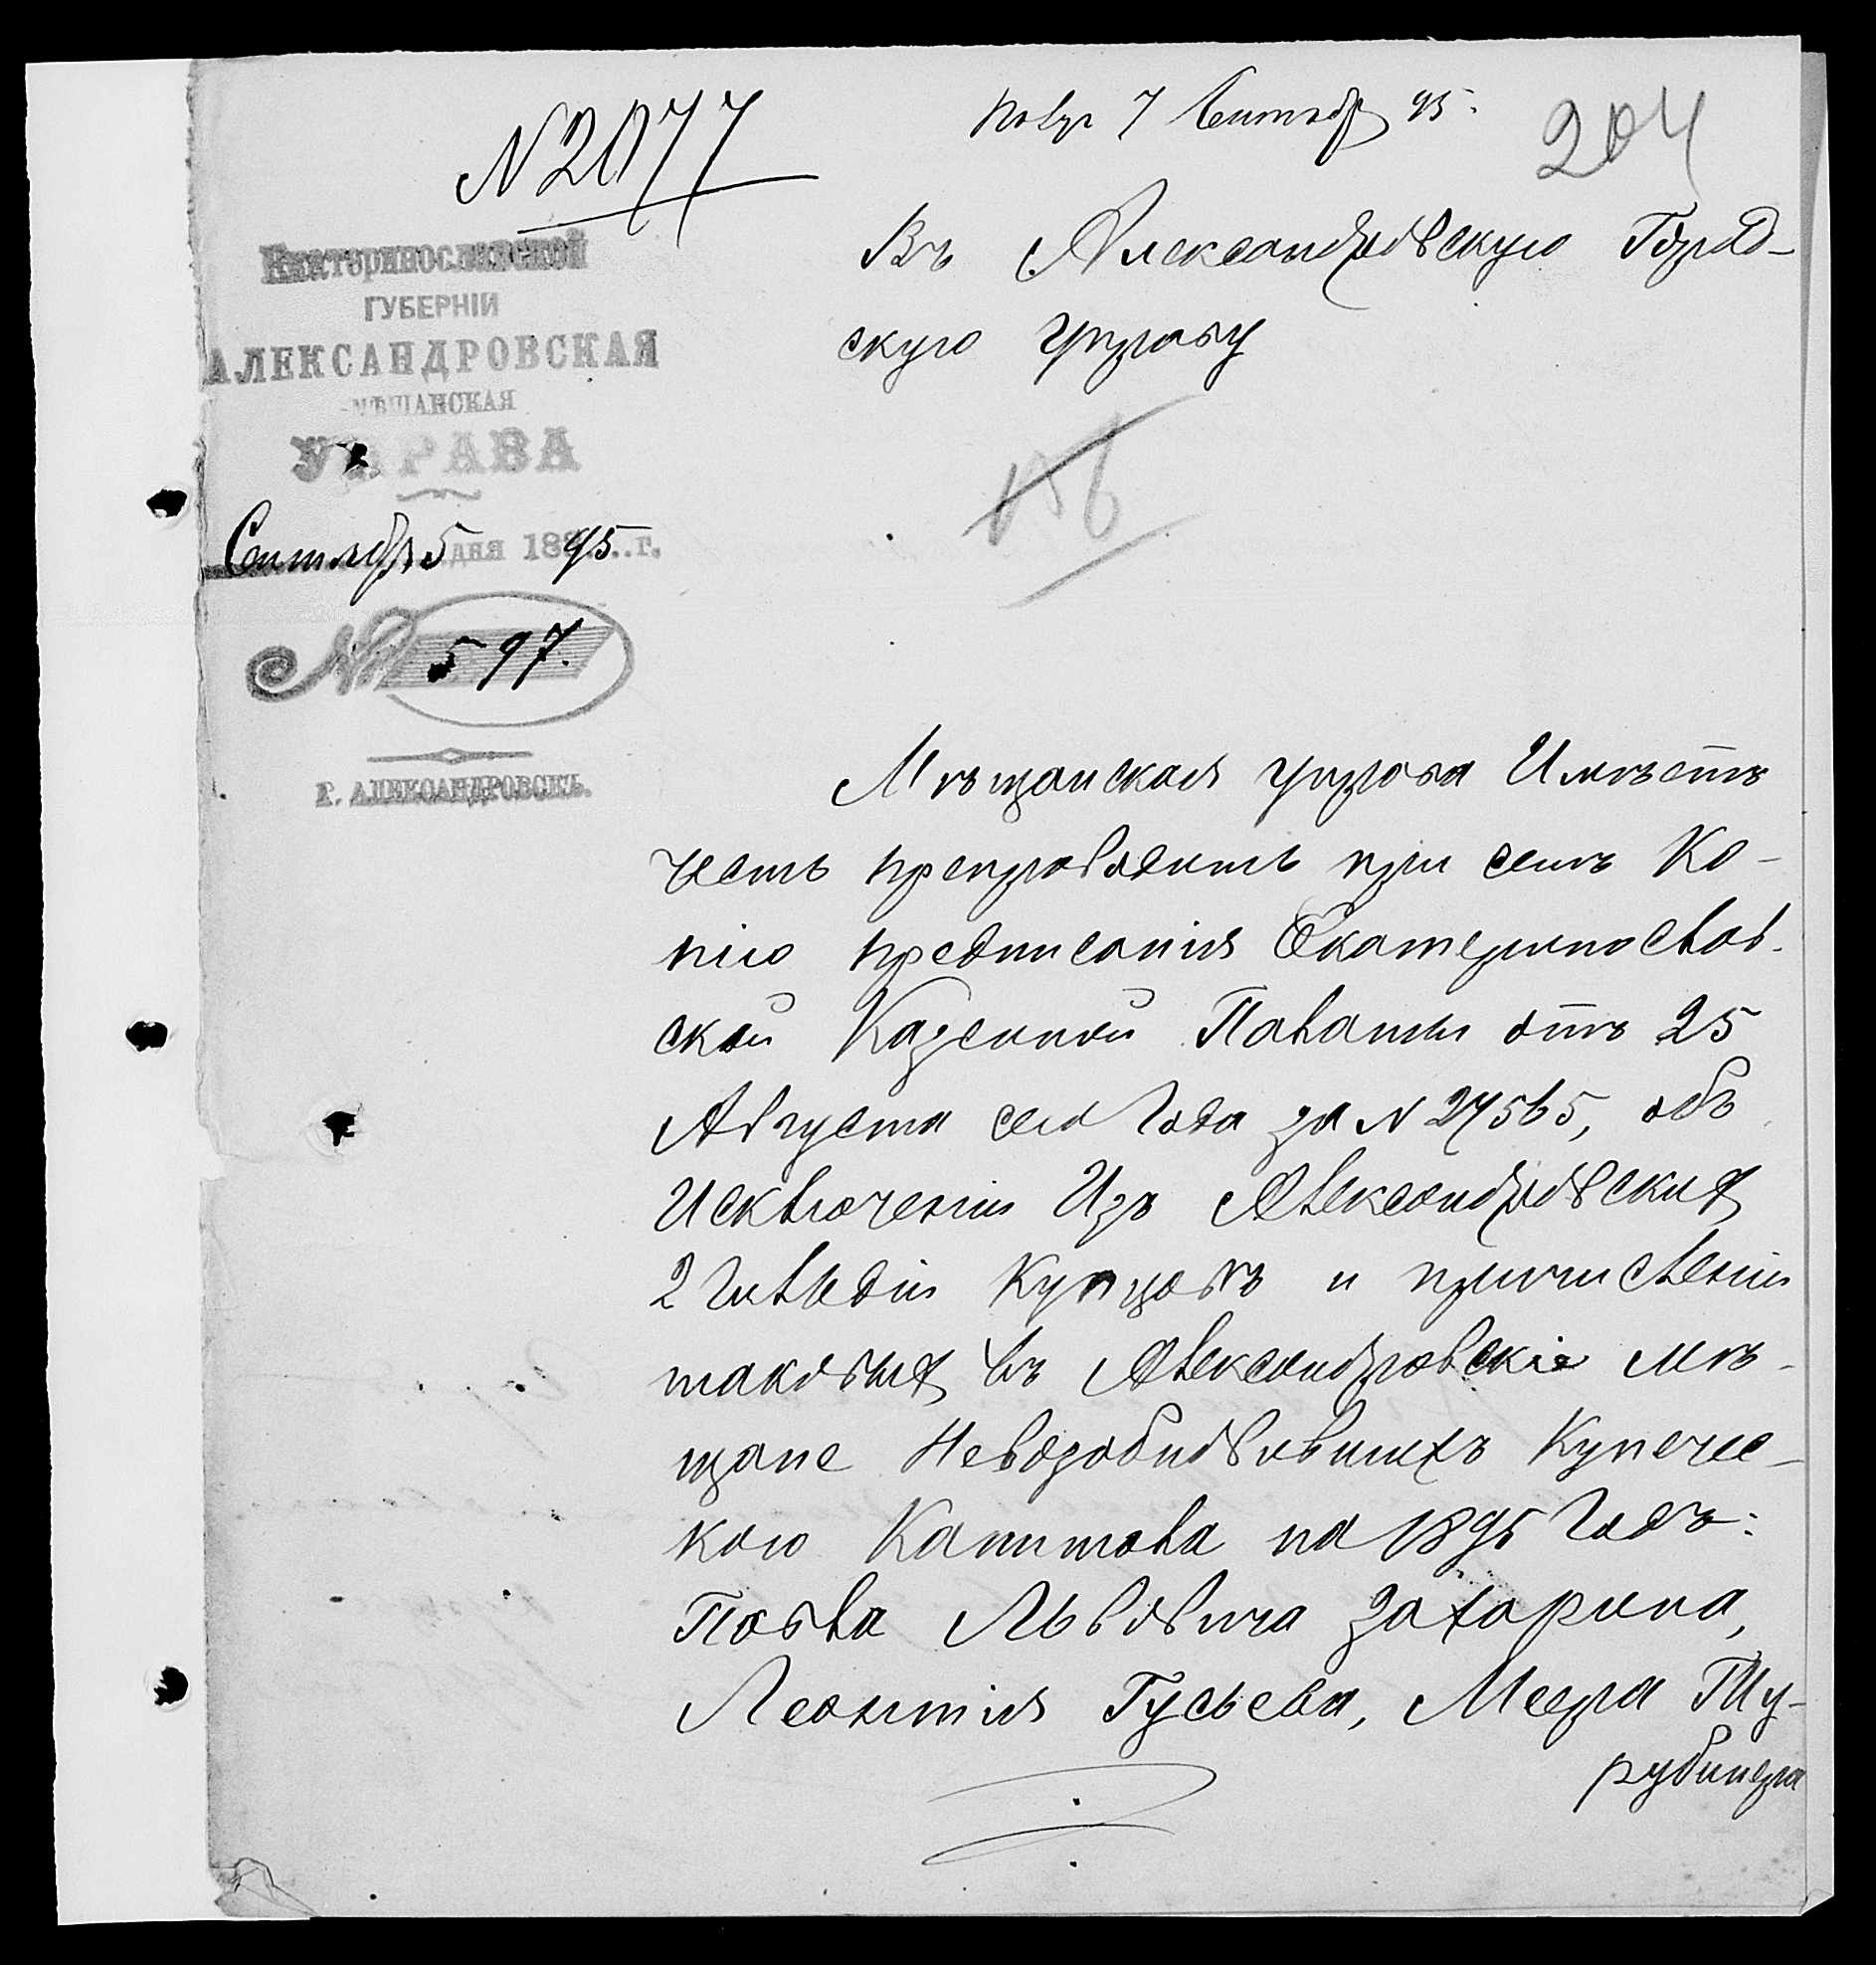 № 2077
Пол 7 Сентябр 95.
204
Въ Александровскую Город-
скую Управу
Екатеринославской
ГУБЕРНІИ
АЛЕКСАНДРОВСКАЯ
МѢЩАНСКАЯ
УПРАВА
Сентября 5 дня 1895 г.
№ 597.
Г. АЛЕКСАНДРОВСКЪ.
156
Мѣщанская управа Имѣетъ
честь препроводить при семъ Ко-
пію предписанія Екатеринослав-
ской Казенной Палаты отъ 25
Августа сего Года за № 27565, объ
Исключеніи Изъ Александровскихъ
2 Гильдіи Купцовъ и причисленіи
таковыхъ въ Александровскіе мѣ-
щане Невозобновившихъ Купечес-
каго Капитала на 1895 Годъ:
Павла Львовича Захарина,
Леонтія Гусьева, Меера Шу-
рубинера